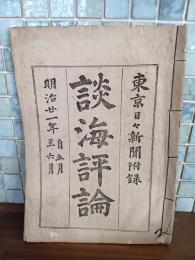 東京日々新聞附録
談海評論
明治廿一年 自五月 至六月